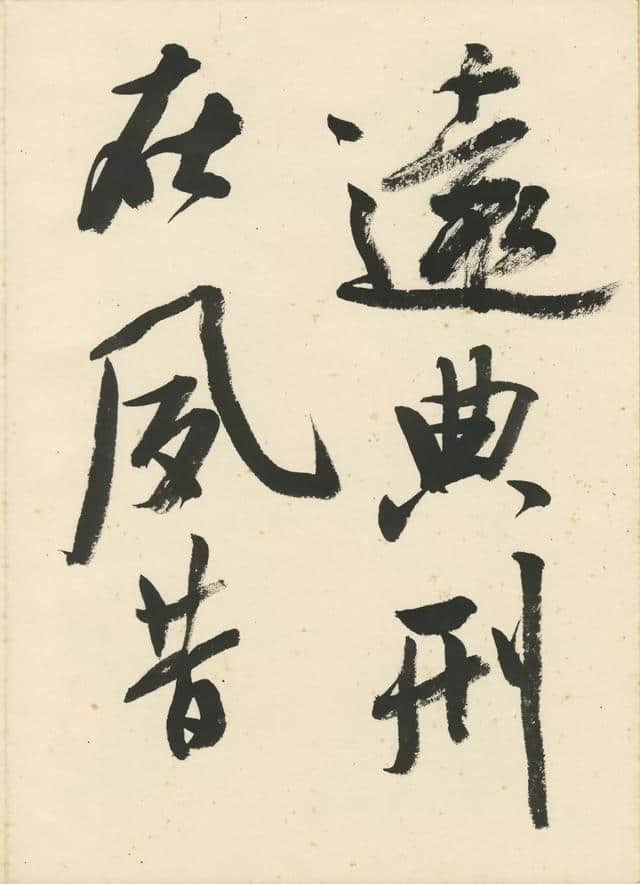 遠典刑
在夙昔